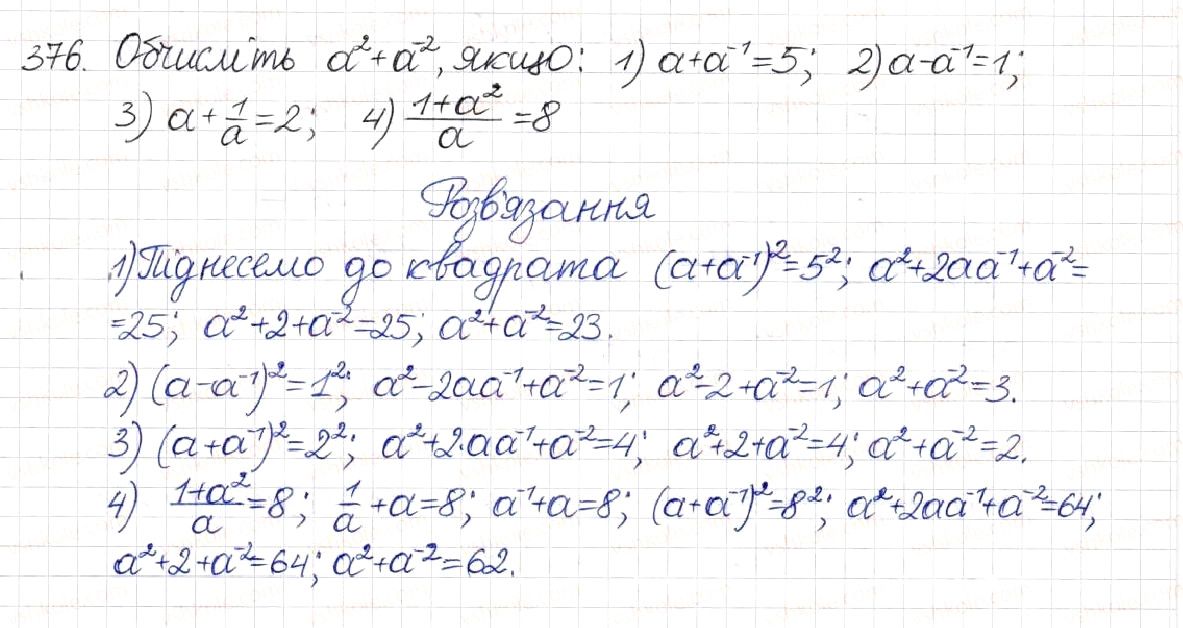 376. Обчисліть a²+a⁻², якщо: 1) a+a⁻¹=5; 2) a-a⁻¹=1;
3) a+1/a=2; 4) (1+a²)/a=8
Розв'язання
1) Піднесемо до квадрата (a+a⁻¹)²=5²; a²+2aa⁻¹+a⁻²=
=25; a²+2+a⁻²=25; a²+a⁻²=23.
2) (a-a⁻¹)²=1²; a²-2aa⁻¹+a⁻²=1; a²-2+a⁻²=1; a²+a⁻²=3.
3) (a+a⁻¹)²=2²; a²+2·aa⁻¹+a⁻²=4; a²+2+a⁻²=4; a²+a⁻²=2.
4) (1+a²)/a=8; 1/a+a=8; a⁻¹+a=8; (a+a⁻¹)²=8²; a²+2aa⁻¹+a⁻²=64;
a²+2+a⁻²=64; a²+a⁻²=62.